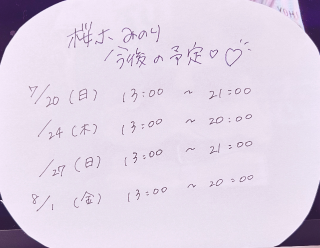 桜木 みのり
今後の予定♡♡
7/20 (日) 13:00 ~ 21:00
/24 (木) 13:00 ~ 20:00
/27 (日) 13:00 ~ 21:00
8/1 (金) 13:00 ~ 20:00